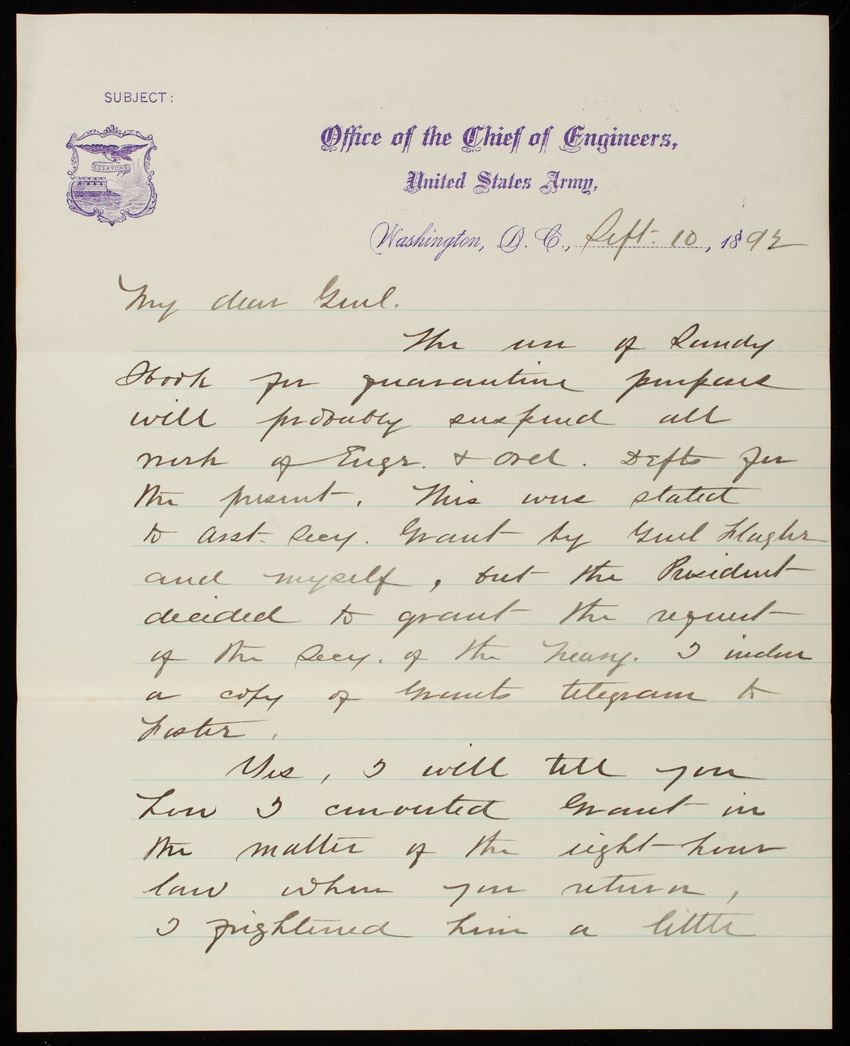 SUBJECT:
ESSAYONS
Office of the Chief of Engineers,
United States Army,
Washington, D. C., Sept. 10, 1892
My dear Genl.
The use of Sandy
Hook for quarantine purposes
will probably suspend all
work of Engr. & Ord. Depts for
the present. This was stated
to Asst. Secy. Grant by Genl Flagler
and myself, but the President
decided to grant the request
of the Secy. of the Treasy. I inclose
a copy of Grants telegram to
Foster.
Yes, I will tell you
how I converted Grant in
the matter of the eight-hour
law when you return,
I frightened him a little